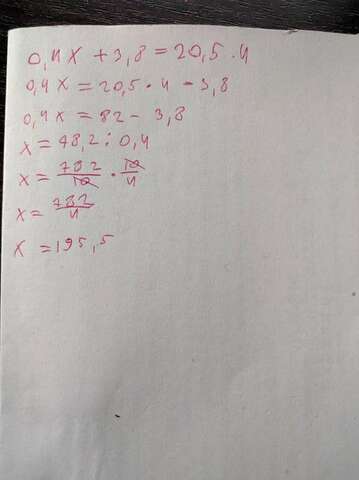 0,4x + 3,8 = 20,5 · 4
0,4x = 20,5 · 4 - 3,8
0,4x = 82 - 3,8
x = 78,2 : 0,4
x = 782/10 · 10/4
x = 782/4
x = 195,5